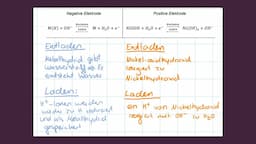 Negative Elektrode
Positive Elektrode
Entladen
Entladen
Metallhydrid gibt
Wasserstoff ab. Es
entsteht Wasser
Nickel-oxidhydroxid
reagiert zu
Nickelhydroxid
Laden:
Laden
H⁺-Ionen werden
wieder zu H reduziert
und als Metallhydrid
gespeichert
ein H⁺ von Nickelhydroxid
reagiert mit OH⁻ zu H₂O